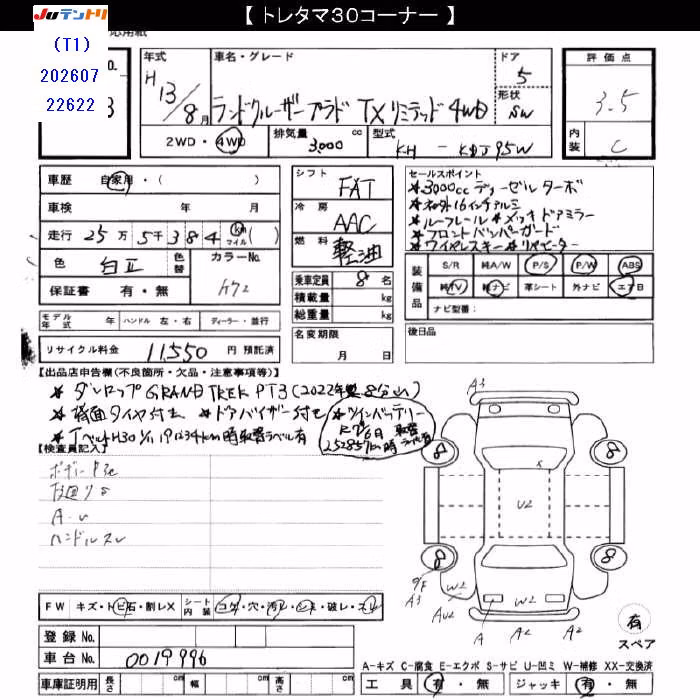 【 トレタマ30コーナー 】
Juテントリ
(T1)
202607
22622
応用紙
年式
車名・グレード
ドア
評価点
H 13/8月
ランドクルーザープラド TXリミテッド 4WD
5
形状
SW
3.5
2WD・4WD
排気量
3,000 cc
型式
KH - KDJ95W
内装
C
車歴
自家用・( )
車検 年 月
走行 25万5千384 km マイル ( )
色
白正
色替
カラーNo.
保証書 有・無
シフト
FAT
冷房
AAC
燃料
軽油
乗車定員 8 名
積載量 kg
総重量 kg
セールスポイント
*3000cc ディーゼルターボ
*ルーフレール *メッキドアミラー
*フロントバンパーガード
*ワイヤレスキー
装備品
S/R 純A/W P/S P/W ABS
純TV 純ナビ 革シート 外ナビ エアB
ナビ型番:
モデル年式 年 ハンドル 左・右 ディーラー・並行
名変期限
月 日
後日品
リサイクル料金 11,550 円 預託済
【出品店申告欄(不良箇所・欠品・注意事項等)】
*ダンロップ GRANDTREK PT3 (2022年
*背面タイヤ付き *ドアバイザー付き *ツインバッテリー
*TベルトH30
【検査員記入】
A-U
ハンドルスレ
A3
8
8
U2
8
8
A3
W2
W2
AU2
A
A2
A2
有
スペア
FW キズ・トビ石・割レX シート内装 コゲ・穴・汚レ・シミ・破レ・スレ
登録No.
車台No. 0019996
車庫証明用 長さ cm 幅 cm 高さ cm
A-キズ C-腐食 E-エクボ S-サビ U-凹ミ W-補修 XX-交換済
工具 有・無 ジャッキ 有・無